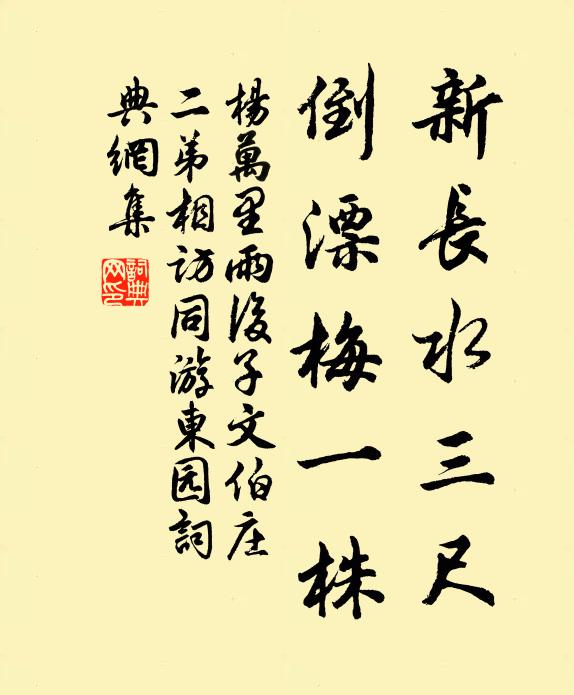 新長水三尺
倒漂梅一株
楊萬里雨後子文伯庄
二弟相訪同游東园詞
典網集
詞典
网印